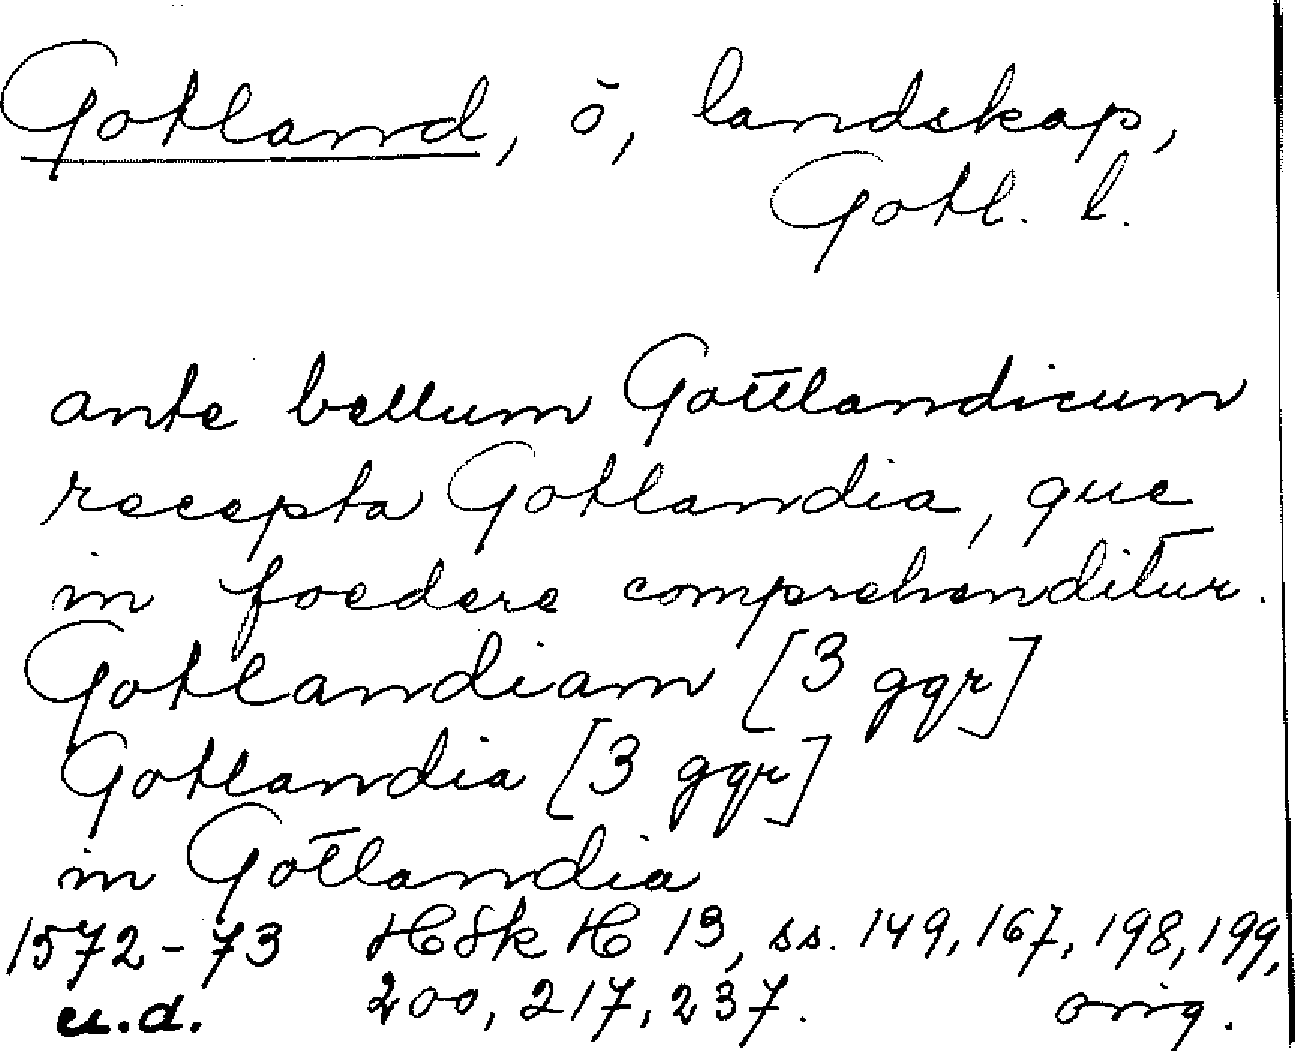 Gotland, ö, landskap,
Gotl. l.
ante bellum Gottlandicum
recepta Gotlandia, que
in foedere comprehenditur.
Gotlandiam [3 ggr]
Gotlandia [3 ggr]
in Gotlandia
1572-73 HSk H 13, ss. 149, 167, 198, 199,
u.d. 200, 217, 237. orig.